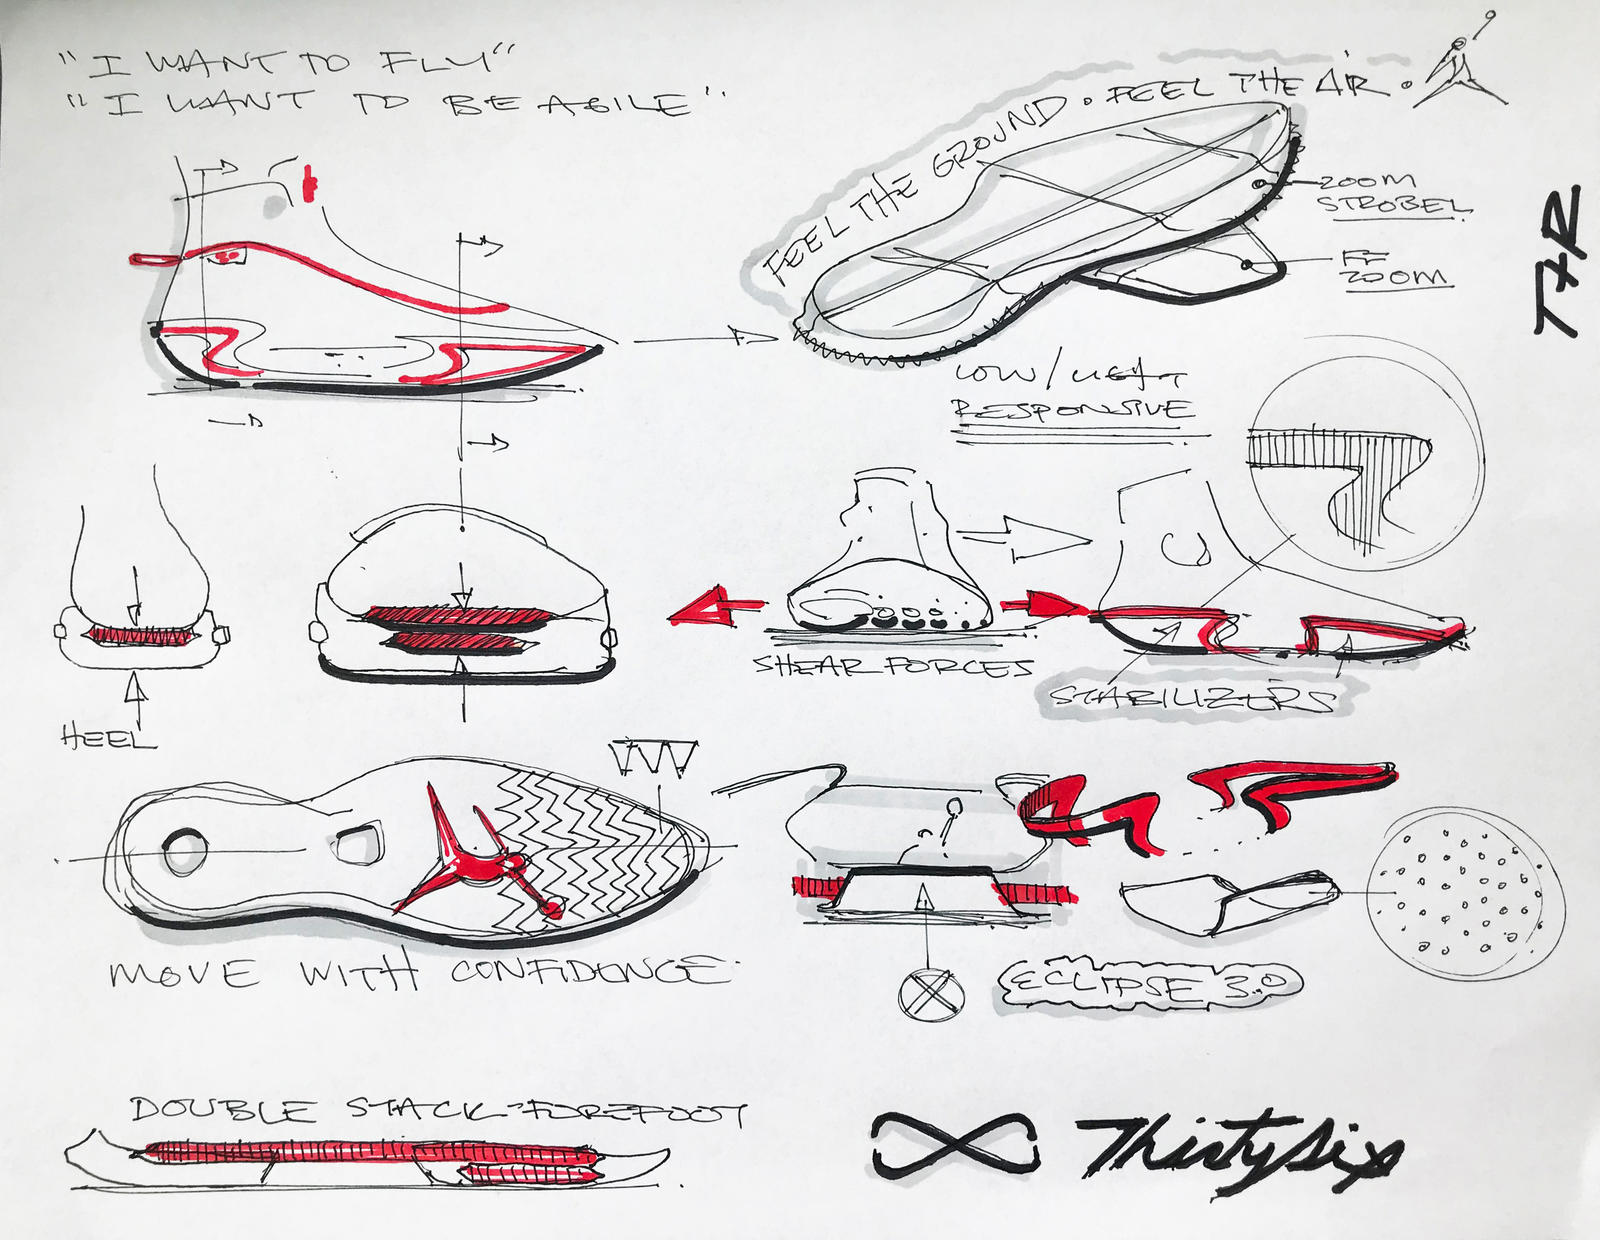 "I WANT TO FLY"
"I WANT TO BE AGILE"
FEEL THE GROUND · FEEL THE AIR ·
ZOOM
STROBEL
FF
ZOOM
TXR
LOW/LIGHT
RESPONSIVE
SHEAR FORCES
STABILIZERS
HEEL
MOVE WITH CONFIDENCE
ECLIPSE 3.0
DOUBLE STACK-FOREFOOT
ThirtySix